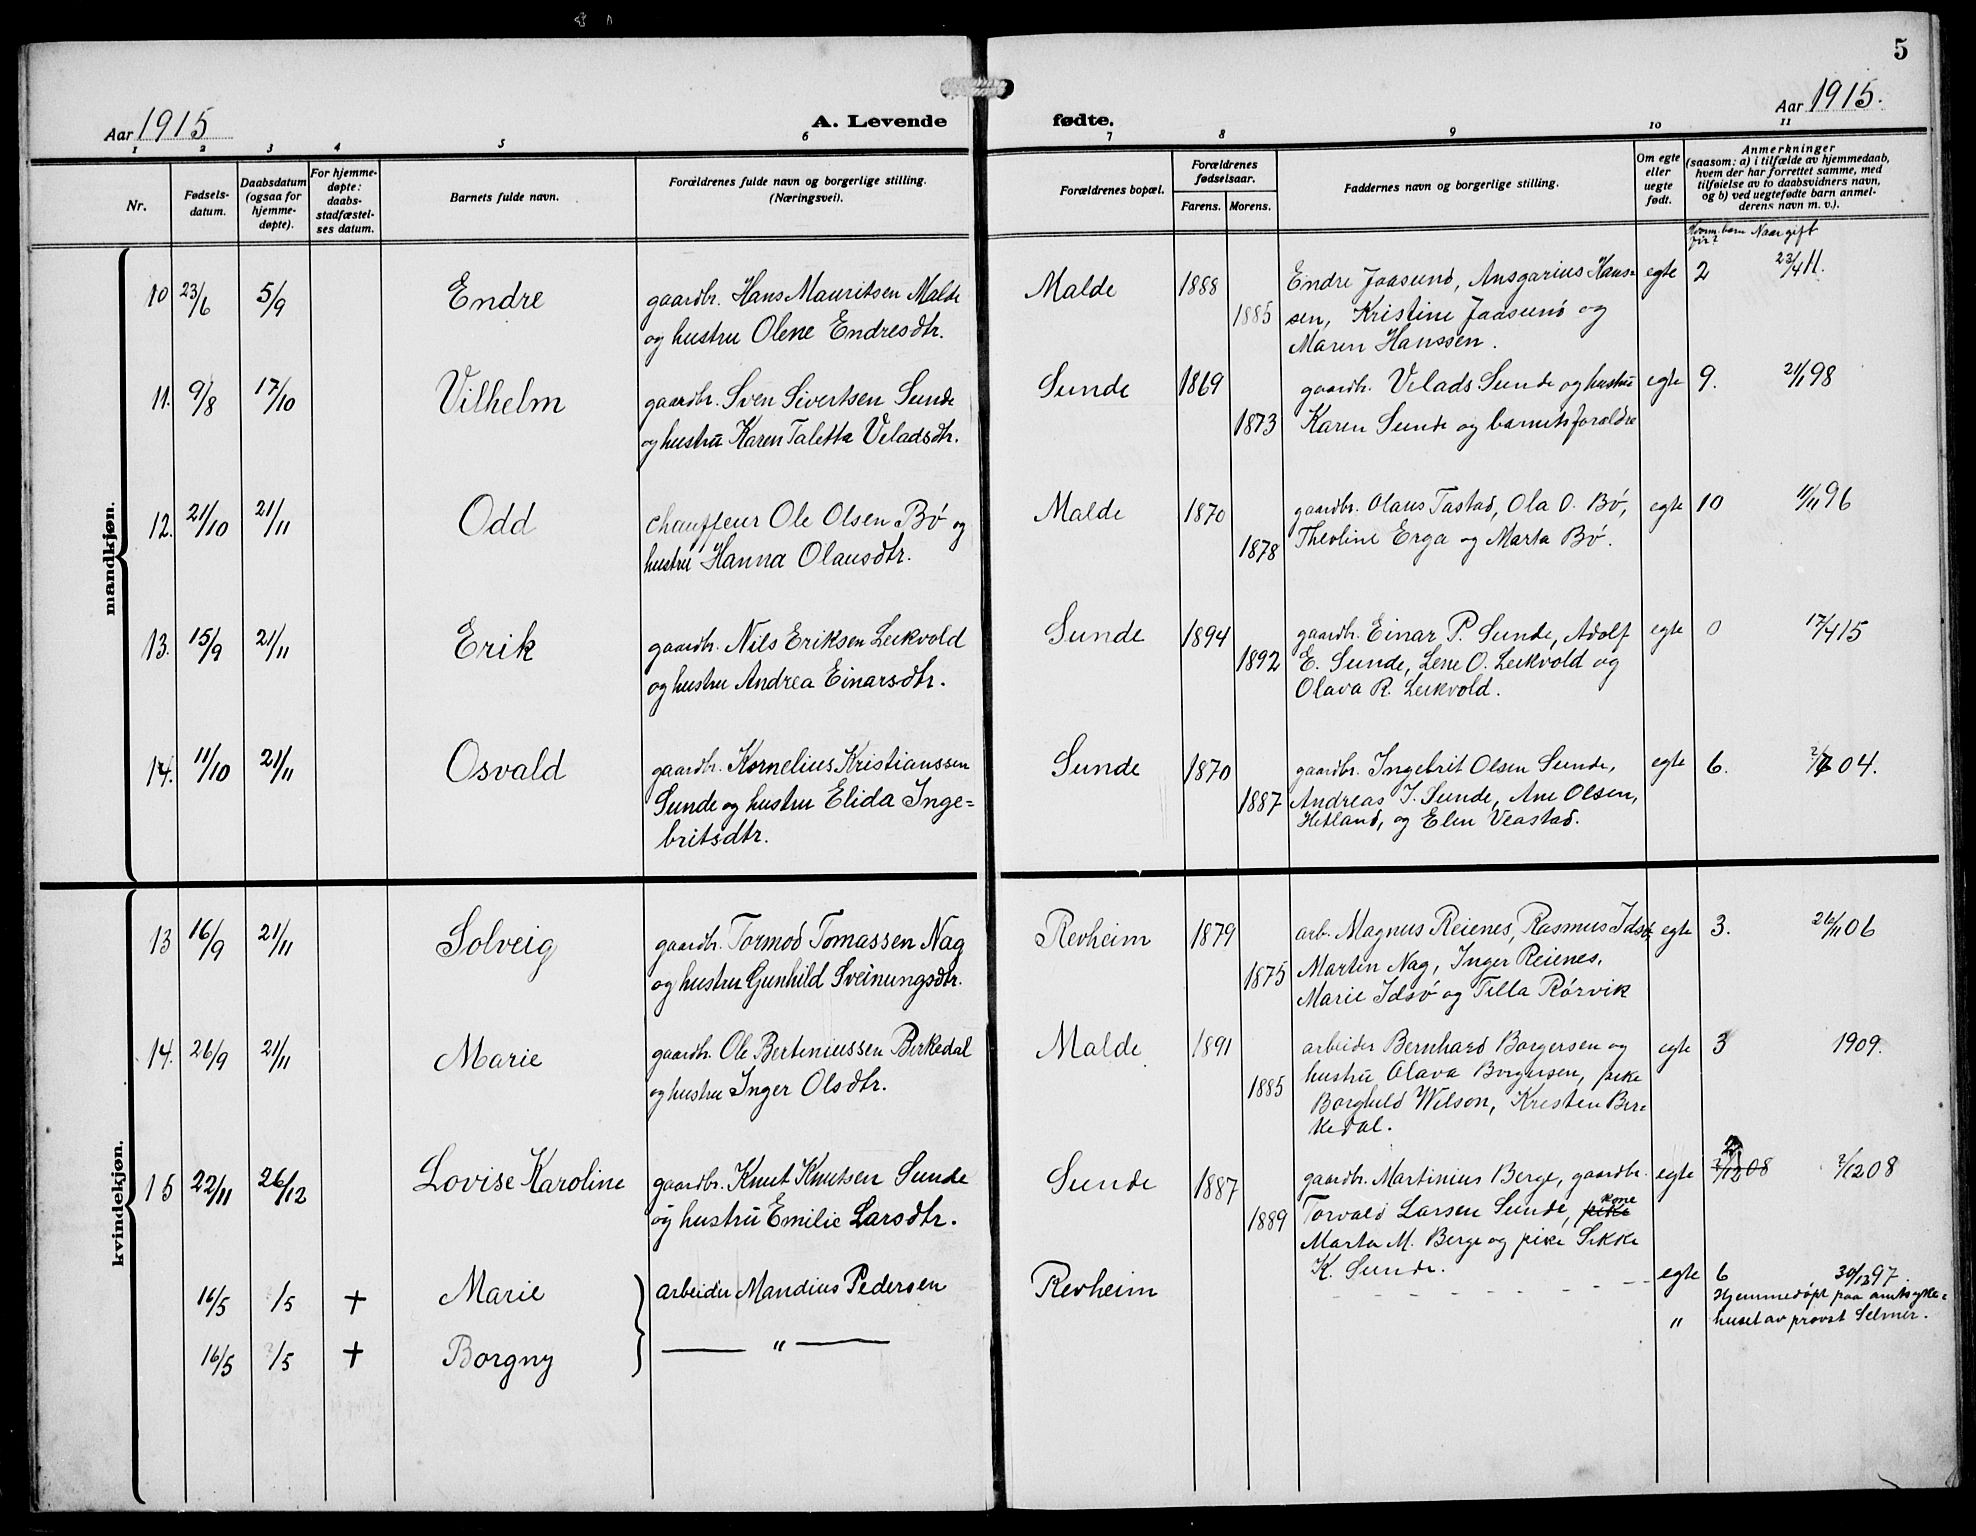 5
Aar 1915
A. Levende fødte.
Aar 1915.
1 2 3 4 5 6 7 8 9 10 11
Nr.
Fødsels-
datum.
Daabsdatum
(ogsaa for
hjemme-
døpte).
For hjemme-
døpte:
daabs-
stadfæstel-
ses datum.
Barnets fulde navn.
Forældrenes fulde navn og borgerlige stilling.
(Næringsvei).
Forældrenes bopæl.
Forældrenes
fødselsaar.
Farens. Morens.
Faddernes navn og borgerlige stilling.
Om egte
eller
uegte
født.
Anmerkninger
(saasom: a) i tilfælde av hjemmedaab,
hvem der har forrettet samme, med
tilføielse av to daabsvidners navn,
og b) ved uegtefødte barn anmel-
derens navn m. v.).
barn Naar gift
før?
mandkjøn.
10 23/6 5/9 Endre
gaardbr. Hans Mauritsen Malde
og hustru Olene Endresdtr.
Malde 1888 1885
Endre Jaasund, Ansgarius Hans=
sen, Kristine Jaasund og
Maren Hanssen.
egte 2 23/4 11.
11. 9/8 17/10 Vilhelm
gaardbr. Sven Sivertsen Sunde
og hustru Karen Taletta Veladsdtr.
Sunde 1869 1873
gaardbr. Velads Sunde og hustru
Karen Sunde og barnets foraldre
egte 9. 21/1 98
12. 21/10 21/11 Odd
chauffeur Ole Olsen Bø og
hustru Hanna Olausdtr.
Malde 1870 1878
gaardbr. Olaus Tastad, Ola O. Bø,
Theoline Erga og Marta Bø.
egte 10 11/11 96
13. 15/9 21/11 Erik
gaardbr. Nils Eriksen Leikvold
og hustru Andrea Einarsdtr.
Sunde 1894 1892
gaardbr. Einar P. Sunde, Adolf
E. Sunde, Lene O. Leikvold og
Olava R. Leikvold.
egte 0 17/4 15
14. 11/10 21/11 Osvald
gaardbr. Kornelius Kristianssen
Sunde og hustru Elida Inge=
britsdtr.
Sunde 1870 1887
gaardbr. Ingebrit Olsen Sunde,
Andreas I. Sunde, Ane Olsen,
Hetland, og Elen Veastad.
egte 6. 04.
kvindekjøn.
13 16/9 21/11 Solveig
gaardbr. Tormod Tomassen Nag
og hustru Gunhild Sveinungsdtr.
Revheim 1879 1875
arb. Magnus Reienes, Rasmus Idsø,
Martin Nag, Inger Reienes,
Marie Idsø og Tilla Rørvik
egte 3. 26/11 06
14. 26/9 21/11 Marie
gaardbr. Ole Berteniussen Birkedal
og hustru Inger Olsdtr.
Malde 1891 1885
arbeider Bernhard Borgersen og
hustru Olava Borgersen, pike
Borghild Wilson, Kresten Bir=
kedal.
egte 3 1909.
15 22/11 26/12 Lovise Karoline
gaardbr. Knut Knutsen Sunde
og hustru Emilie Larsdtr.
Sunde 1887 1889
gaardbr. Martinius Berge, gaardbr.
Torvald Larsen Sunde, pike kone
Marta M. Berge og pike Sikke
K. Sunde.
egte 2 ?/12 08 ?/12 08
16/5 /5 + Marie
arbeider Mandius Pedersen
Revheim
egte 6 30/12 97.
Hjemmedøpt paa amtsyke=
16/5 ?/5 + Borgny
— " —
" huset av provst Selmer.